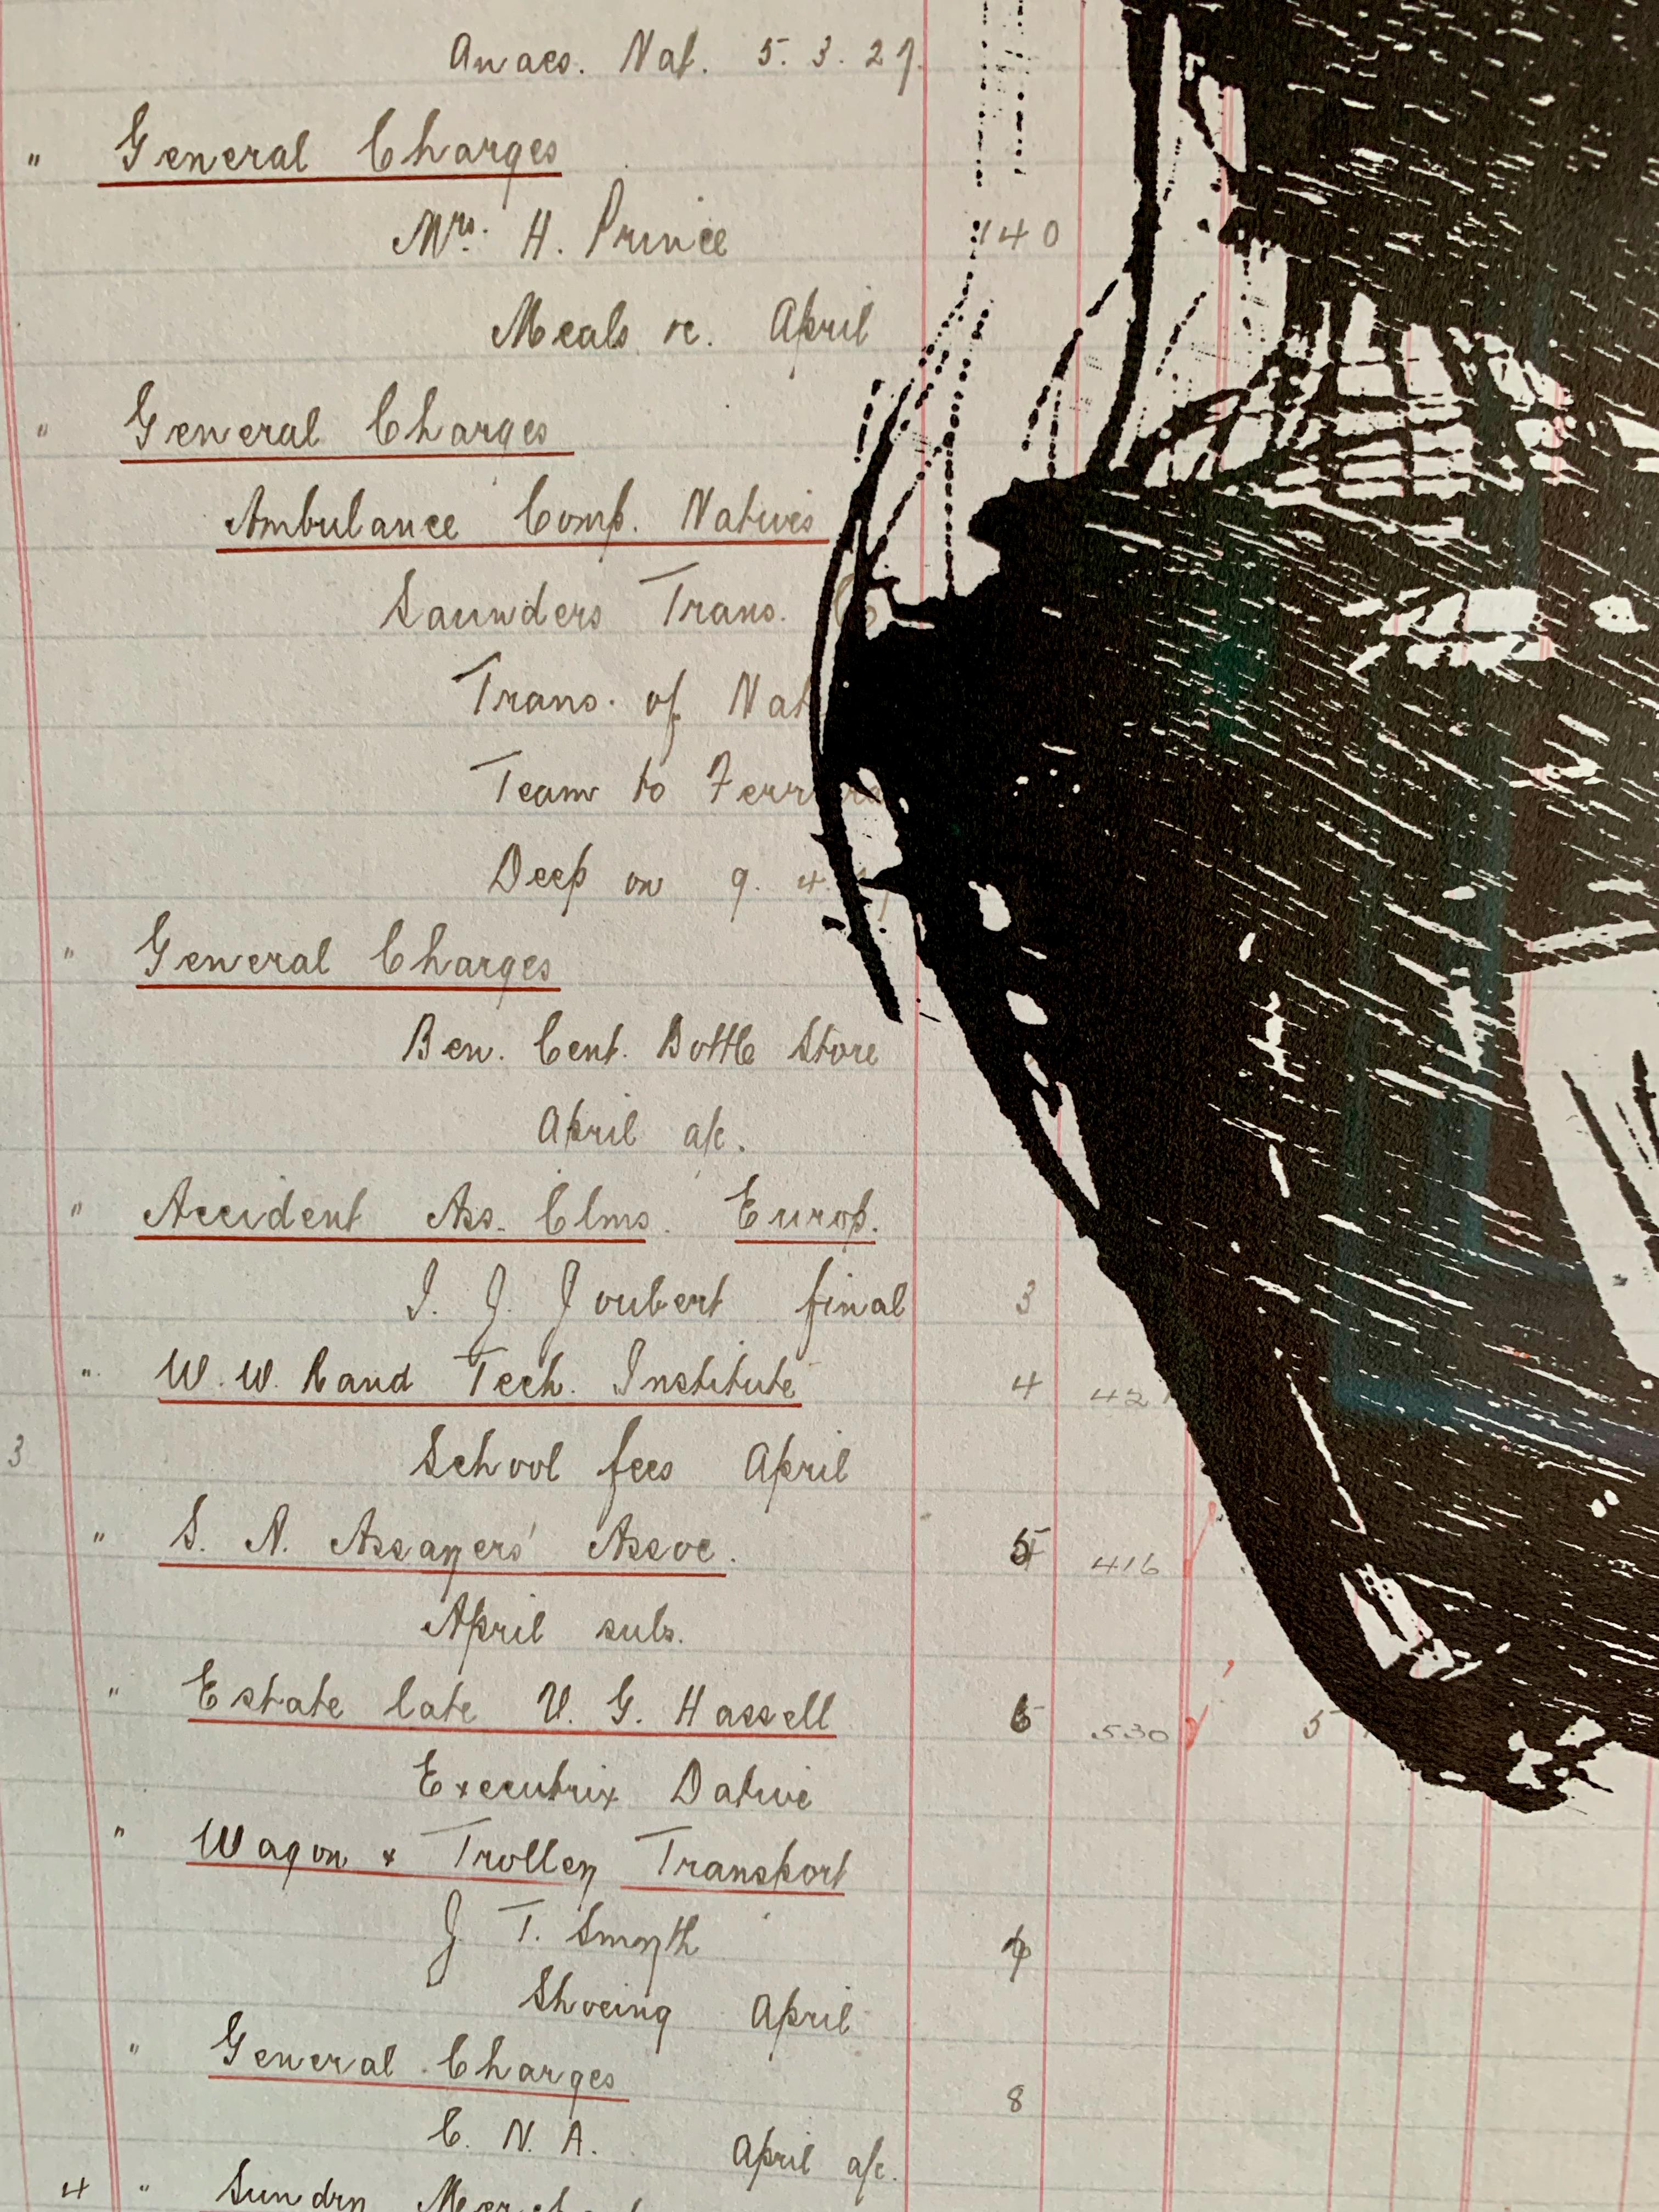 Anaes. Nat. 5.3.27.
" General Charges
Mrs. H. Prince 140
Meals &c. April
" General Charges
Ambulance Comp. Natives
Saunders Trans. Co
Trans. of Nat
Team to Ferreira
Deep on 9.4.27
" General Charges
Ben. Cent. Bottle Store
April a/c.
" Accident Ass. Clms. Europ.
I. J. Joubert final 3
" W. W. Rand Tech. Institute 4 421
3 School fees April
" S. A. Assayers' Assoc. 5 416
April subs.
" Estate late V. G. Hassell 6 530 5
Executrix Dative
" Wagon & Trolley Transport
J T. Smyth 7
Shoeing April
" General Charges 8
C. N. A. April a/c.
4 " Sundry